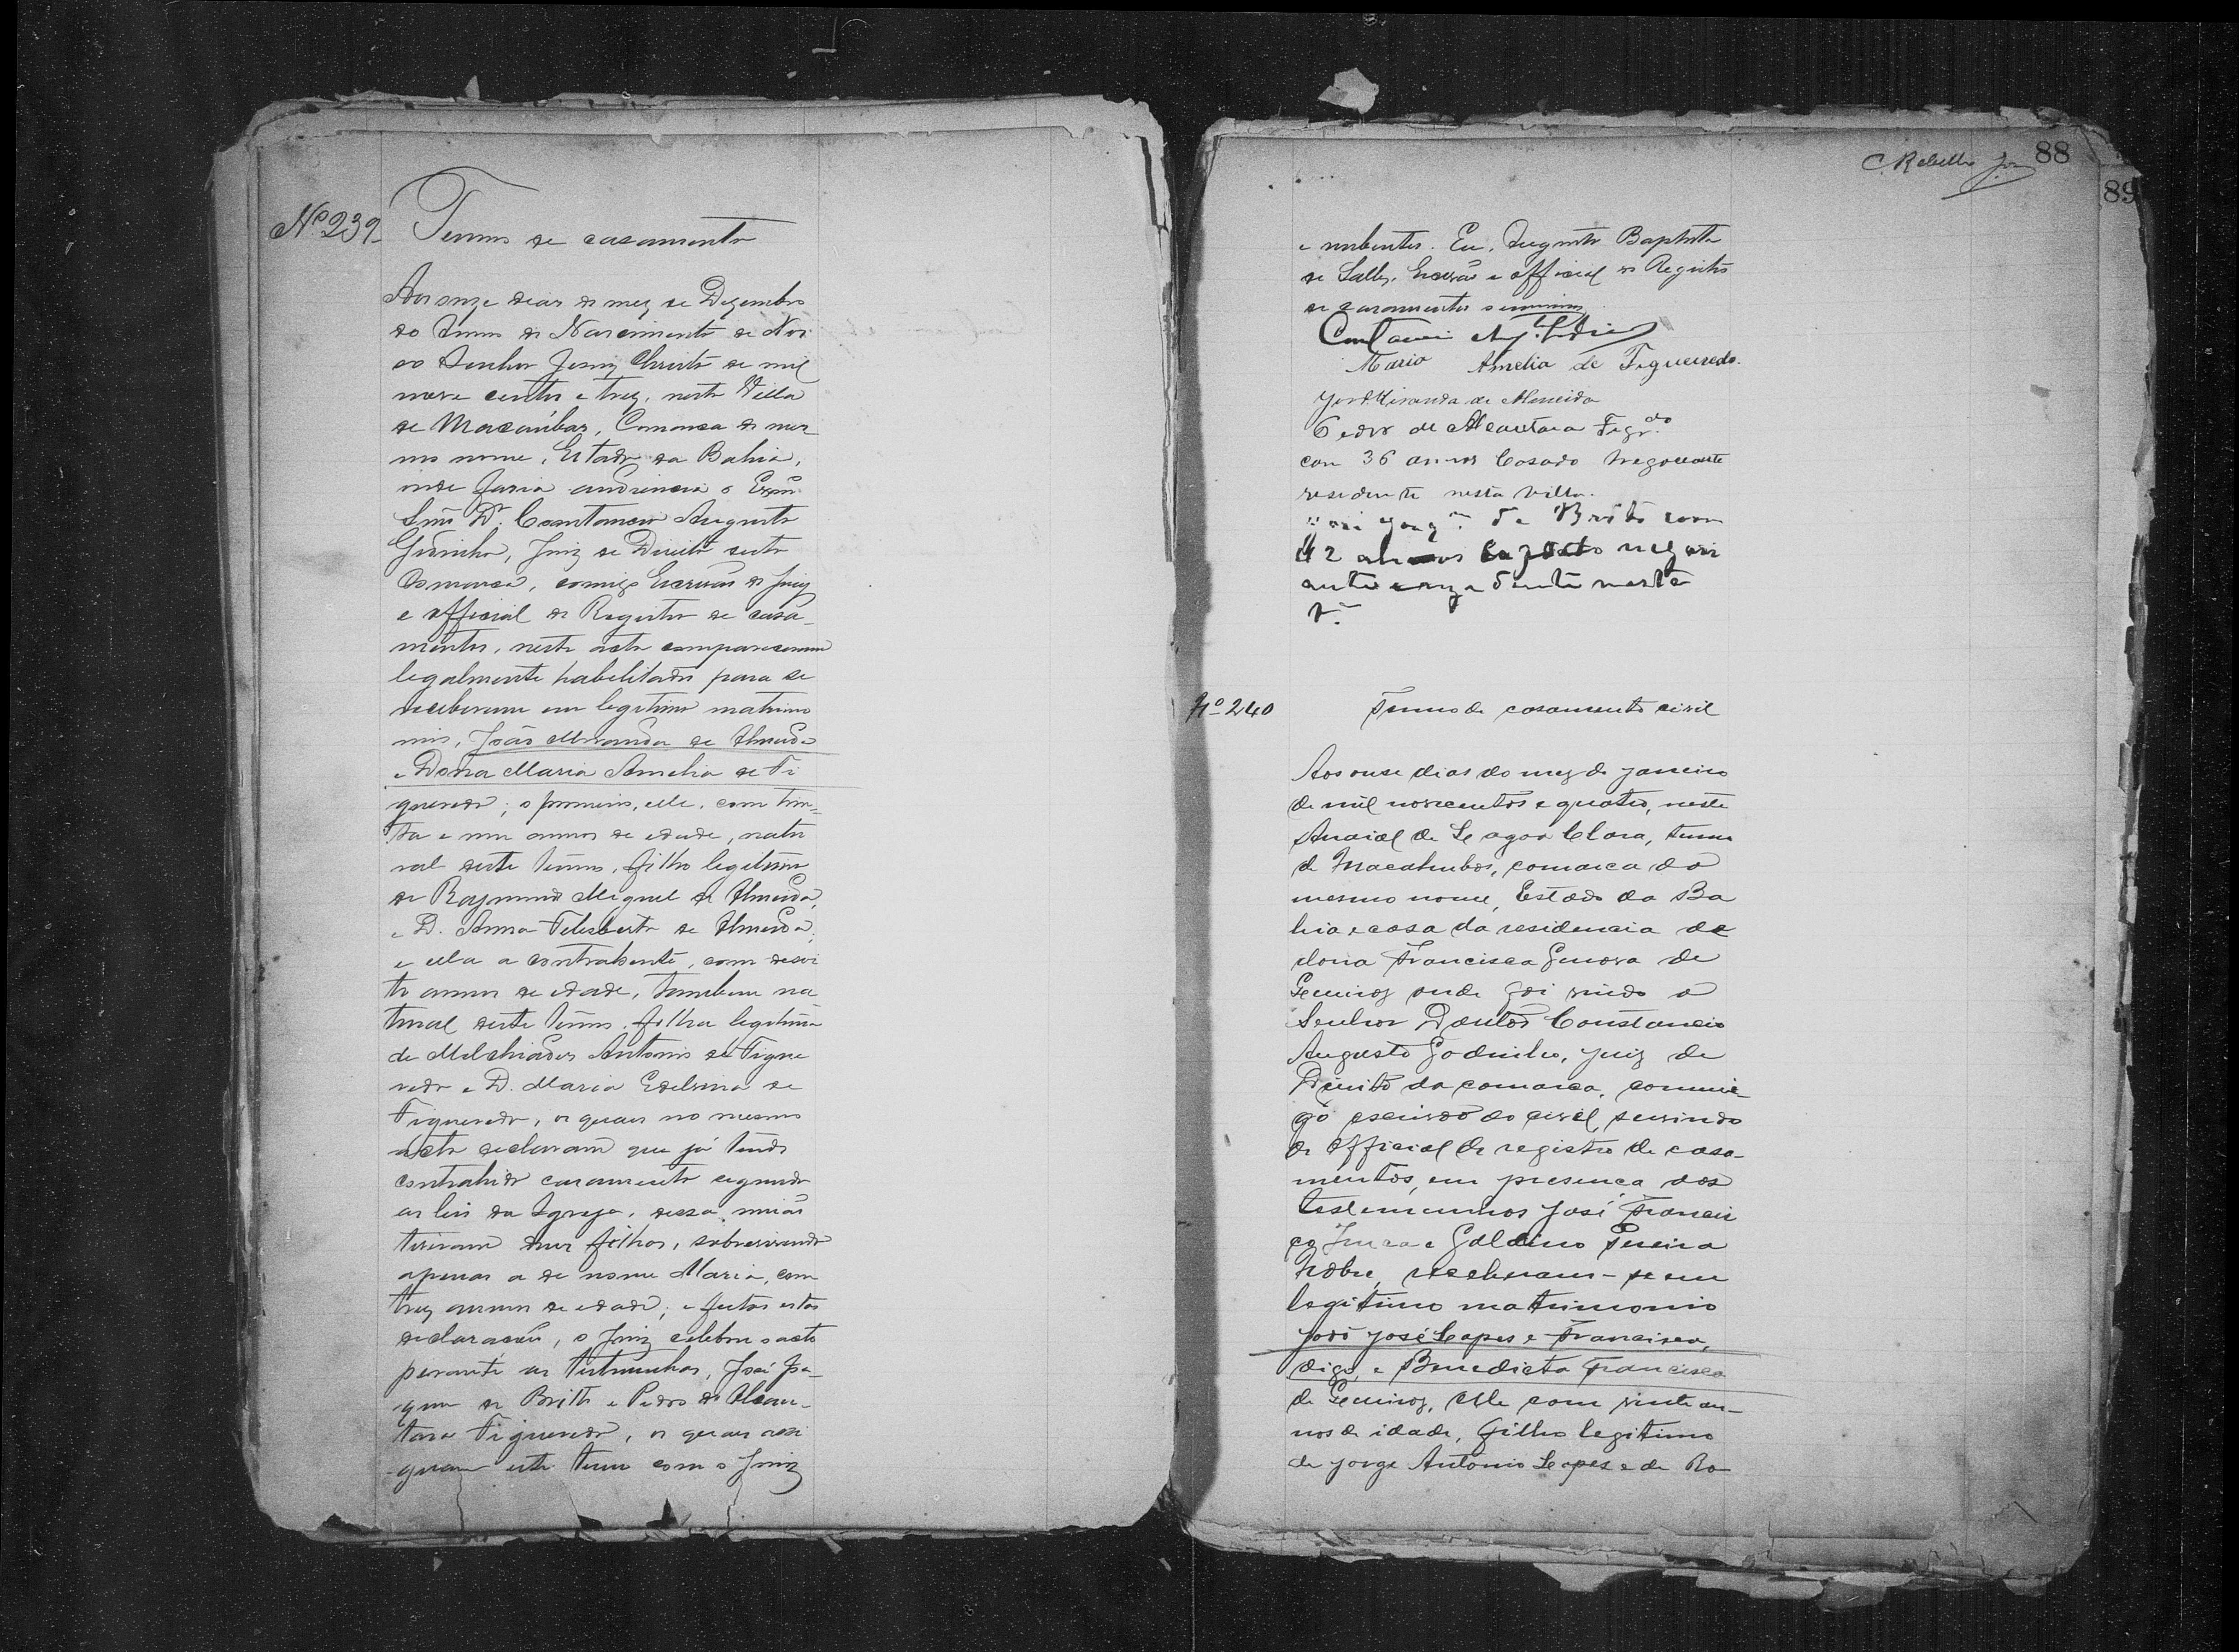 Nº 239 Termo de casamento
Aos onze dias do mez de Dezembro
do Anno do Nascimento de Nos
so Senhor Jesuz Christo de mil
nove centos e trez, nesta Villa
de Macaúbas, Comarca do mes
mo nome, Estado da Bahia,
onde fazia audiencia o Exmº
Snr Dr. Constancio Augusto
Godinho, Juiz de Direito desta
Comarca, comigo Escrivão do Juiz
e official do Registro de casa-
mentos, neste acto compareceram
legalmente habilitados para se
receberem em legitimo matrimo
nio, João Miranda de Almeida
e Dona Maria Amelia de Fi
gueredo; o primeiro, elle, com trin-
ta e um annos de edade, natu
ral deste termo, filho legitimo
de Raymundo Miguel de Almeida,
e D. Anna Felisberta de Almeida,
e ella a contrahente, com desoi
to annos de edade, tambem na
tural deste termo, filha legitima
de Melchiades Antonio de Figue
redo e D. Maria Edelvina de
Figueredo, os quaes no mesmo
acto declaram que já tendo
contrahido casamento segundo
as leis da Igreja, dessa união
tiveram dous filhos, sobrevivendo
apenas a de nome Maria, com
trez annos de edade; e feitas estas
declarações, o Juiz celebrou o acto
perante as testemunhas, José Joa-
quim de Britto e Pedro de Alcan-
tara Figueredo, os quaes assi
gnam este termo com o Juiz
C. Rebello 88
89
e nubentes. Eu, Augusto Baptista
de Salles, Escrivão e official do Registro
de casamentos
Constancio Aug.to Godinho
Maria Amelia de Figueiredo.
João Miranda de Almeida
Pedro de Alcantara Figr.do
com 36 annos Casado Negociante
residente nesta Villa.
José Joaq.m de Brito com
42 annos negoci
ante rezedente nesta
V.ª
Nº 240 Termo de casamento civil
Aos onse dias do mez de janeiro
de mil novecentos e quatro, neste
Arraial de Lagoa Clara, termo
de Macahubas, comarca do
mesmo nome, Estado da Ba
hia e casa da residencia de
dona Francisca Genova de
Queiroz onde foi vindo o
Senhor Doutor Constancio
Augusto Godinho, juiz de
Direito da comarca, commi-
go escrivão do civel, servindo
de official de registro de casa-
mentos, em presença das
testemunhas José Francis
co e Galdino Pereira
Nobre, receberam-se em
legitimo matrimonio
João José Lopes e Francisca,
digo, e Benedicta Francisca
de Queiroz, elle com vinte an-
nos de idade, filho legitimo
de Jorge Antonio Lopes e de Ro